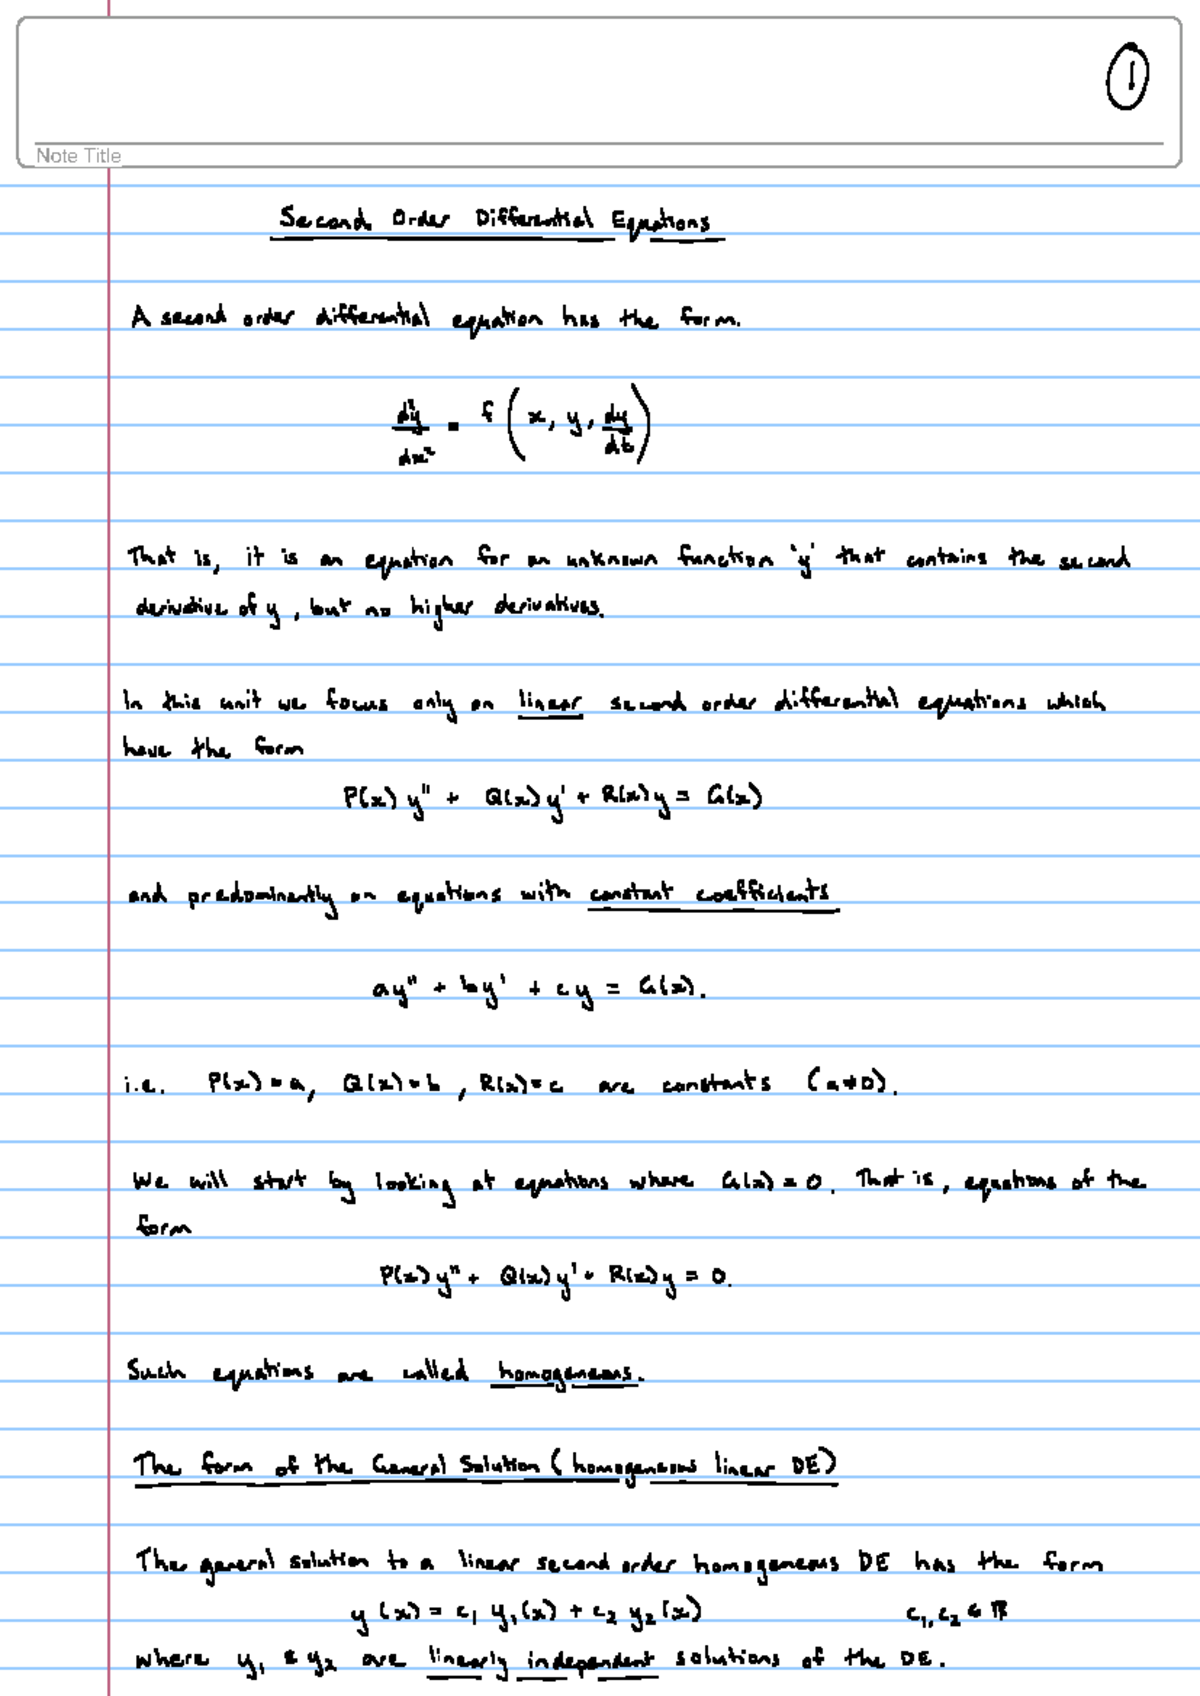 ①
Note Title
Second Order Differential Equations
A second order differential equation has the form.
d²y/dx² = f(x, y, dy/dt)
That is, it is an equation for an unknown function 'y' that contains the second
derivative of y, but no higher derivatives.
In this unit we focus only on linear second order differential equations which
have the form
P(x) y" + Q(x) y' + R(x) y = G(x)
and predominantly on equations with constant coefficients
ay" + by' + cy = G(x).
i.e. P(x) = a, Q(x) = b, R(x) = c are constants (a≠0).
We will start by looking at equations where G(x) = 0. That is, equations of the
form
P(x) y" + Q(x) y' + R(x) y = 0.
Such equations are called homogeneous.
The form of the General Solution (homogeneous linear DE)
The general solution to a linear second order homogeneous DE has the form
y(x) = c₁ y₁(x) + c₂ y₂(x) c₁, c₂ ∈ ℝ
where y₁ & y₂ are linearly independent solutions of the DE.